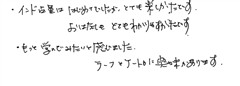 ・インド音楽は はじめてでしたが、とても楽しかったです。
おはなしも とても わかりやすかったです。
・もっと 学んでみたいと感じました。
ラーガとターラに 興味があります。